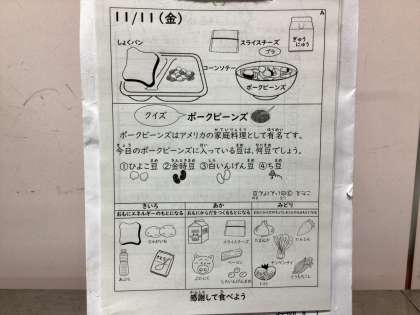 11/11(金)
A
しょくパン
スライスチーズ
プラ
ぎゅうにゅう
コーンソテー
ポークビーンズ
クイズ
ポークビーンズ
ポークビーンズはアメリカの家庭料理として有名です。
今日のポークビーンズに入っている豆は、何豆でしょう。
①ひよこ豆 ②金時豆 ③白いんげん豆 ④ち豆
きいろ
あか
みどり
おもにエネルギーのもとになる
おもにからだをつくるもとになる
じゃがいも
スライスチーズ
ベーコン
しろいんげんまめ
たまねぎ
にんじん
チンゲンサイ
とうもろこし
トマト
あぶら
感謝して食べよう